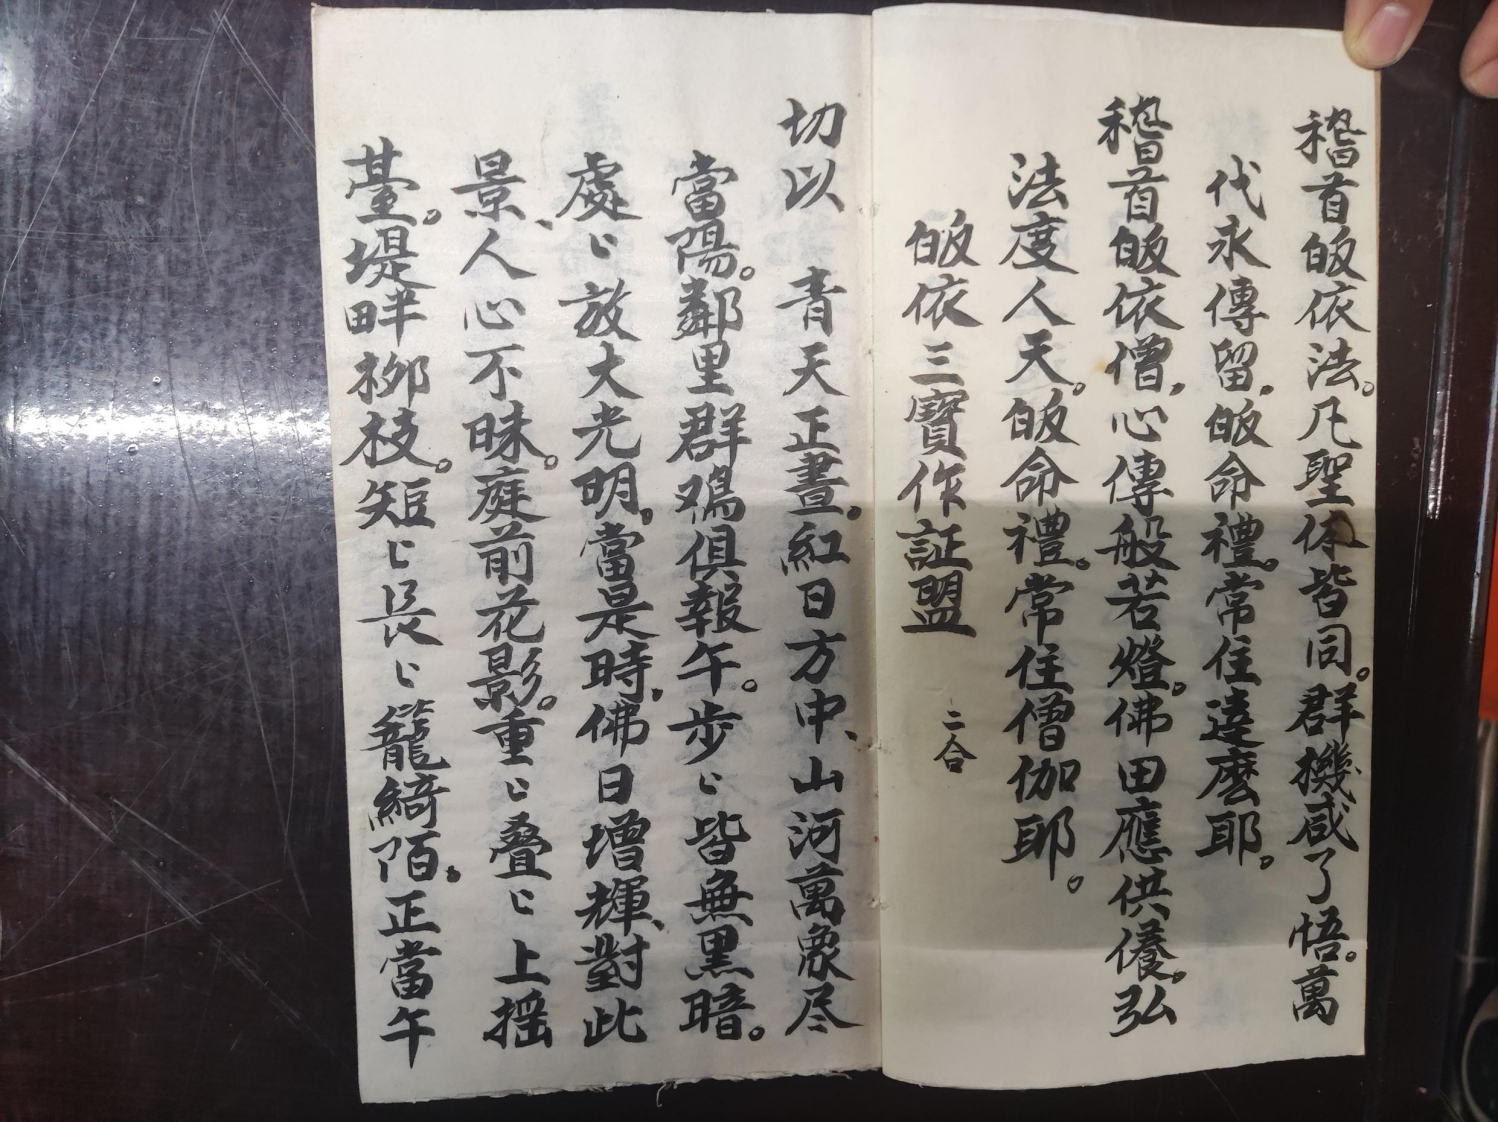 稽首皈依法。凡聖体皆同。群機咸了悟。萬
代永傳留，皈命禮。常住達麽耶。
稽首皈依僧，心傳般若燈。佛田應供養。弘
法度人天。皈命禮。常住僧伽耶。
皈依三寶作証盟
二合
切以 青天正晝。紅日方中、山河萬象尽
當陽。鄰里群鴉俱報午。步〻皆無黑暗。
處〻放大光明。當是時，佛日增輝、對此
景、人心不昧。庭前花影。重〻叠〻上摇
臺。堤畔柳枝。短〻長〻籠綺陌。正當午